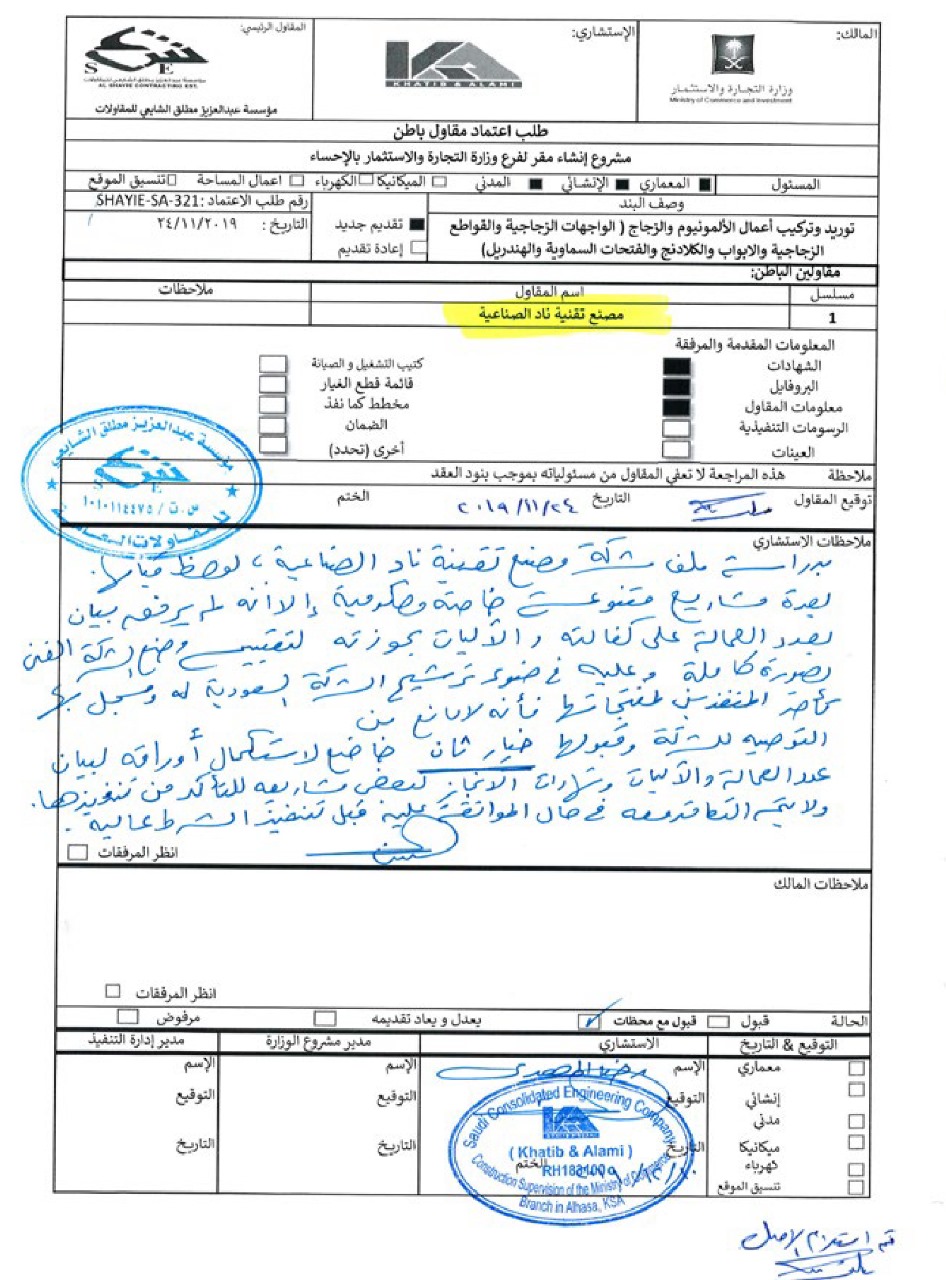 المالك:
وزارة التجارة والاستثمار
Ministry of Commerce and Investment
الإستشاري:
KHATIB & ALAMI
المقاول الرئيسي:
S E
AL SHAYIE CONTRACTING EST.
مؤسسة عبدالعزيز مطلق الشايعي للمقاولات
طلب اعتماد مقاول باطن
مشروع إنشاء مقر لفرع وزارة التجارة والاستثمار بالإحساء
المسئول المعماري الإنشائي المدني الميكانيكا الكهرباء اعمال المساحة تنسيق الموقع
وصف البند
رقم طلب الاعتماد :SHAYIE-SA-321
توريد وتركيب أعمال الألمونيوم والزجاج ( الواجهات الزجاجية والقواطع
الزجاجية والابواب والكلادنج والفتحات السماوية والهندريل)
تقديم جديد
إعادة تقديم
التاريخ : ٢٤/١١/٢٠١٩
مقاولين الباطن:
مسلسل اسم المقاول ملاحظات
1 مصنع تقنية ناد الصناعية
المعلومات المقدمة والمرفقة
الشهادات
البروفايل
معلومات المقاول
الرسومات التنفيذية
العينات
كتيب التشغيل و الصيانة
قائمة قطع الغيار
مخطط كما نفذ
الضمان
أخرى (تحدد)
مؤسسة عبدالعزيز مطلق الشايعي
S E
س.ت / ١٠١٠١١٤٤٧٥
للمقاولات العامة
ملاحظة هذه المراجعة لا تعفي المقاول من مسئولياته بموجب بنود العقد
توقيع المقاول التاريخ ٢٠١٩/١١/٢٤ الختم
ملاحظات الاستشاري
بدراسة ملف شركة مصنع تقنية ناد الصناعية ، لوحظ قيامها
بعدة مشاريع متنوعة خاصة وحكومية إلا أنه لم يرفق بيان
بعدد العمالة على كفالته والآليات بحوزته لتقييم وضع الشركة الفني
بصورة كاملة وعليه في ضوء ترشيح الشركة السعودية له ومسجل بها
كأحد المنفذين لمنتجاتها فأنه لا مانع من
التوصيه للشركة وقبولها خيار ثان خاضع لاستكمال أوراقه لبيان
عدد العمالة والآليات وشهادات الانجاز لبعض مشاريعه للتأكد من تنفيذها.
ولا يتم التعاقد معه في حال الموافقة عليه قبل تنفيذ الشرط عاليه.
انظر المرفقات
ملاحظات المالك
انظر المرفقات
الحالة قبول قبول مع محظات يعدل و يعاد تقديمه مرفوض
التوقيع & التاريخ الاستشاري مدير مشروع الوزارة مدير إدارة التنفيذ
معماري
إنشائي
مدني
ميكانيكا
كهرباء
تنسيق الموقع
الإسم
التوقيع
التاريخ
الختم
Saudi Consolidated Engineering Company
( Khatib & Alami )
Construction Supervision of the Ministry of Commerce
Branch in Alhasa, KSA
الإسم
التوقيع
التاريخ
الإسم
التوقيع
التاريخ
تم استلام الاصل